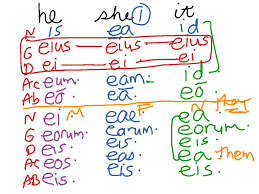 he she ① it
N is ea id
G eius — eius — eius
D ei — ei — ei
Ac eum. eam. id
Ab eō eā. eō
M F N they
N ei eae ea
G eorum. earum. eorum
D eis eis. eis.
Ac eos eas. ea them
AB eis. eis. eis.